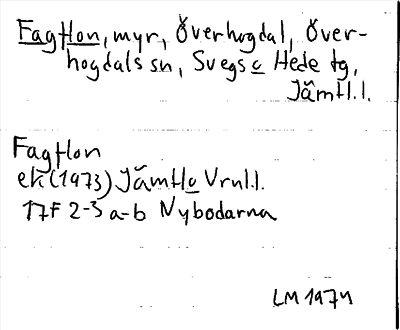 Fagflon, myr, Överhogdal, Över-
hogdals sn, Svegs o Hede tg,
Jämtl.l.
Fagflon
ek (1973) Jämtl o Vrnl.l.
17F 2-3 a-b Nybodarna
LM 1974